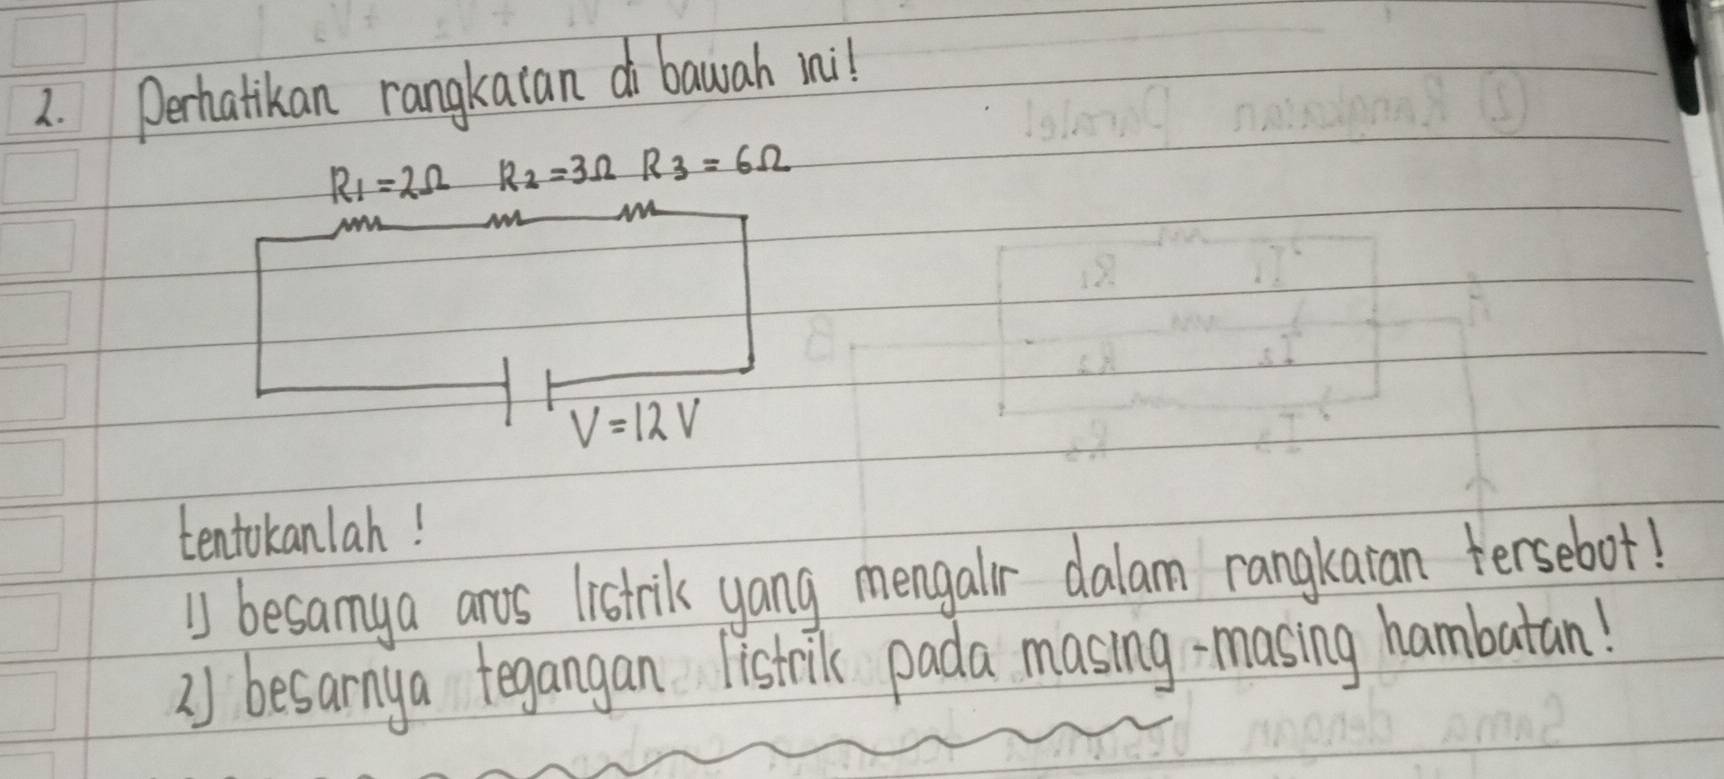 2. Perhatikan rangkaian di bawah ini!
R1=2Ω R2=3Ω R3=6Ω
V=12V
tentukanlah!
1) besarnya arus listrik yang mengalir dalam rangkaian tersebut!
2) besarnya tegangan listrik pada masing-masing hambatan!